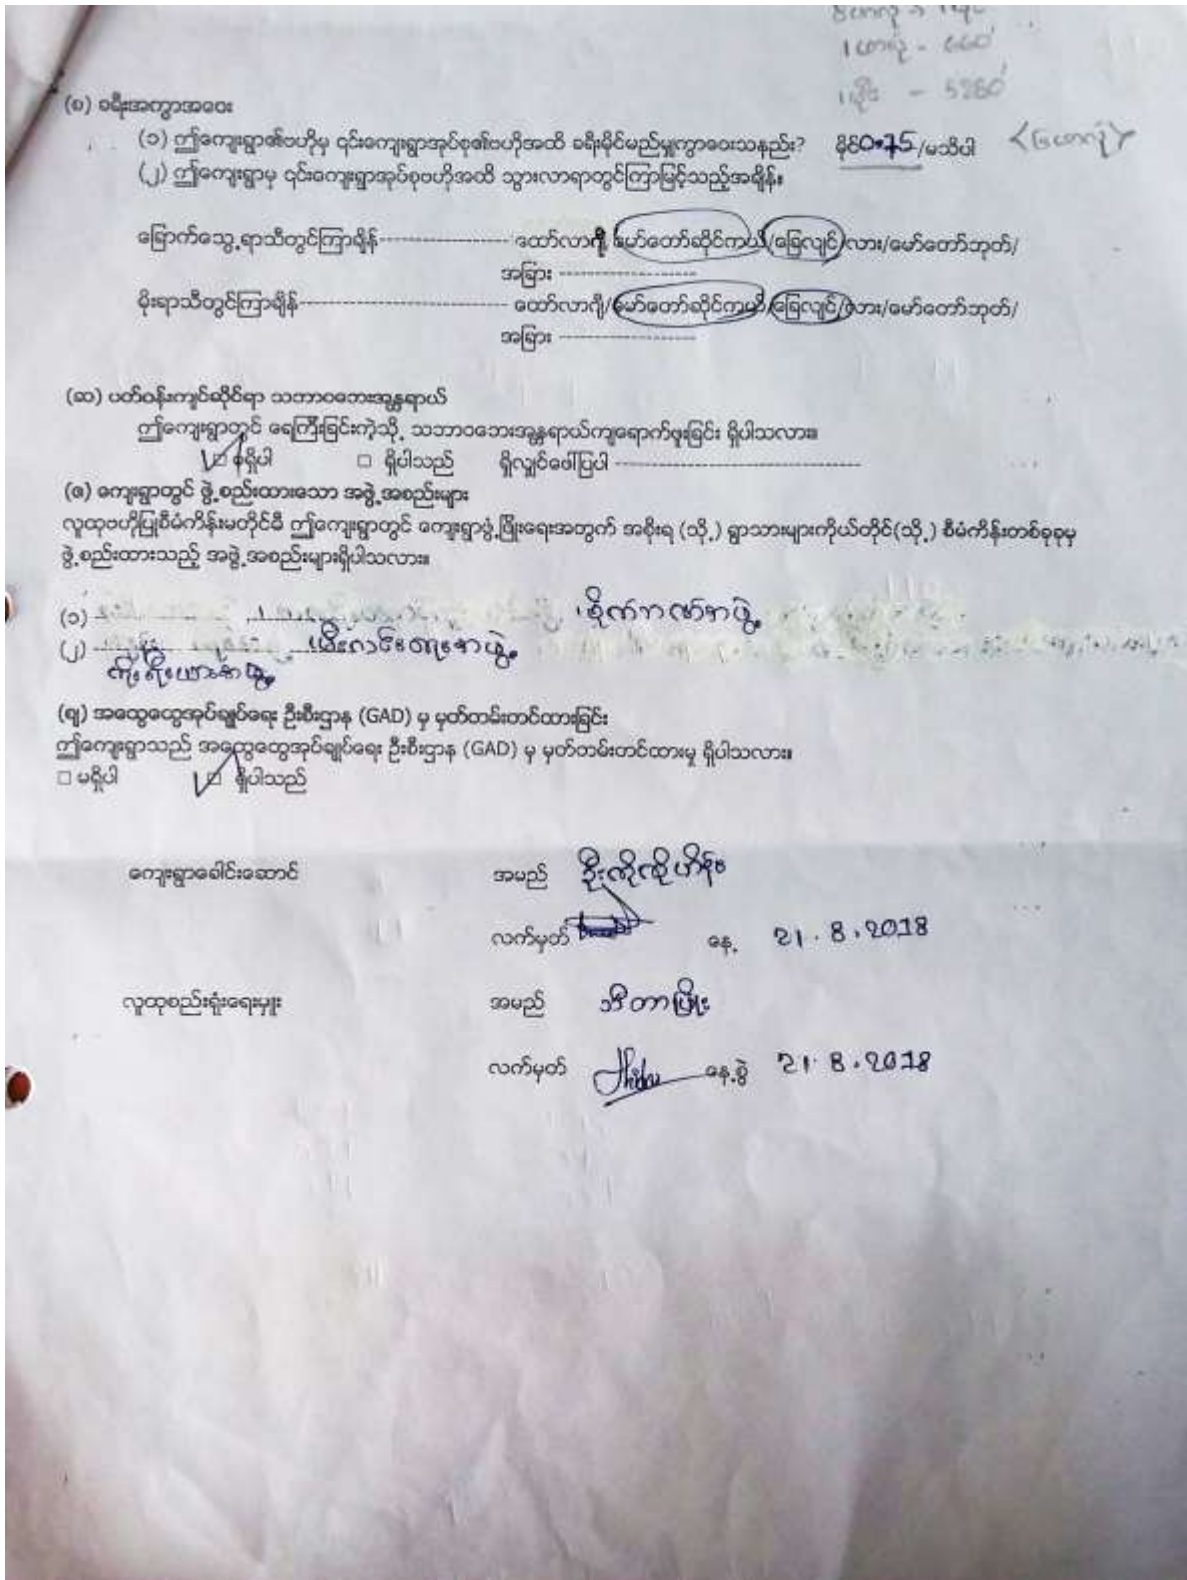 ၁ဖာလုံ - 660'
၁မိုင် - 5280'
(စ) ခရီးအကွာအဝေး
(၁) ဤကျေးရွာ၏ဗဟိုမှ ၎င်းကျေးရွာအုပ်စု၏ဗဟိုအထိ ခရီးမိုင်မည်မျှကွာဝေးသနည်း? မိုင်0.75/မသိပါ <၆ဖာလုံ>
(၂) ဤကျေးရွာမှ ၎င်းကျေးရွာအုပ်စုဗဟိုအထိ သွားလာရာတွင်ကြာမြင့်သည့်အချိန်။
ခြောက်သွေ့ရာသီတွင်ကြာချိန်--------------------- ထော်လာဂျီ/မော်တော်ဆိုင်ကယ်/ခြေလျင်/လား/မော်တော်ဘုတ်/
အခြား ----------------------
မိုးရာသီတွင်ကြာချိန်--------------------------------- ထော်လာဂျီ/မော်တော်ဆိုင်ကယ်/ခြေလျင်/လား/မော်တော်ဘုတ်/
အခြား ----------------------
(ဆ) ပတ်ဝန်းကျင်ဆိုင်ရာ သဘာဝဘေးအန္တရာယ်
ဤကျေးရွာတွင် ရေကြီးခြင်းကဲ့သို့ သဘာဝဘေးအန္တရာယ်ကျရောက်ဖူးခြင်း ရှိပါသလား။
☑ မရှိပါ □ ရှိပါသည် ရှိလျှင်ဖေါ်ပြပါ ---------------------------------------
(ဇ) ကျေးရွာတွင် ဖွဲ့စည်းထားသော အဖွဲ့အစည်းများ
လူထုဗဟိုပြုစီမံကိန်းမတိုင်မီ ဤကျေးရွာတွင် ကျေးရွာဖွံ့ဖြိုးရေးအတွက် အစိုးရ (သို့) ရွာသားများကိုယ်တိုင်(သို့) စီမံကိန်းတစ်ခုခုမှ
ဖွဲ့စည်းထားသည့် အဖွဲ့အစည်းများရှိပါသလား။
(၁) စိုက်ဘဏ်အဖွဲ့
(၂) မီးလင်းရေးအဖွဲ့
ကျိုးရိုးယားအဖွဲ့
(ဈ) အထွေထွေအုပ်ချုပ်ရေး ဦးစီးဌာန (GAD) မှ မှတ်တမ်းတင်ထားခြင်း
ဤကျေးရွာသည် အထွေထွေအုပ်ချုပ်ရေး ဦးစီးဌာန (GAD) မှ မှတ်တမ်းတင်ထားမှု ရှိပါသလား။
□ မရှိပါ ☑ ရှိပါသည်
ကျေးရွာခေါင်းဆောင် အမည် ဦးကိုကိုဟိန်း
လက်မှတ် နေ့ 21.8.2018
လူထုစည်းရုံးရေးမှူး အမည် သီတာဖြိုး
လက်မှတ် Thida နေ့စွဲ 21.8.2018